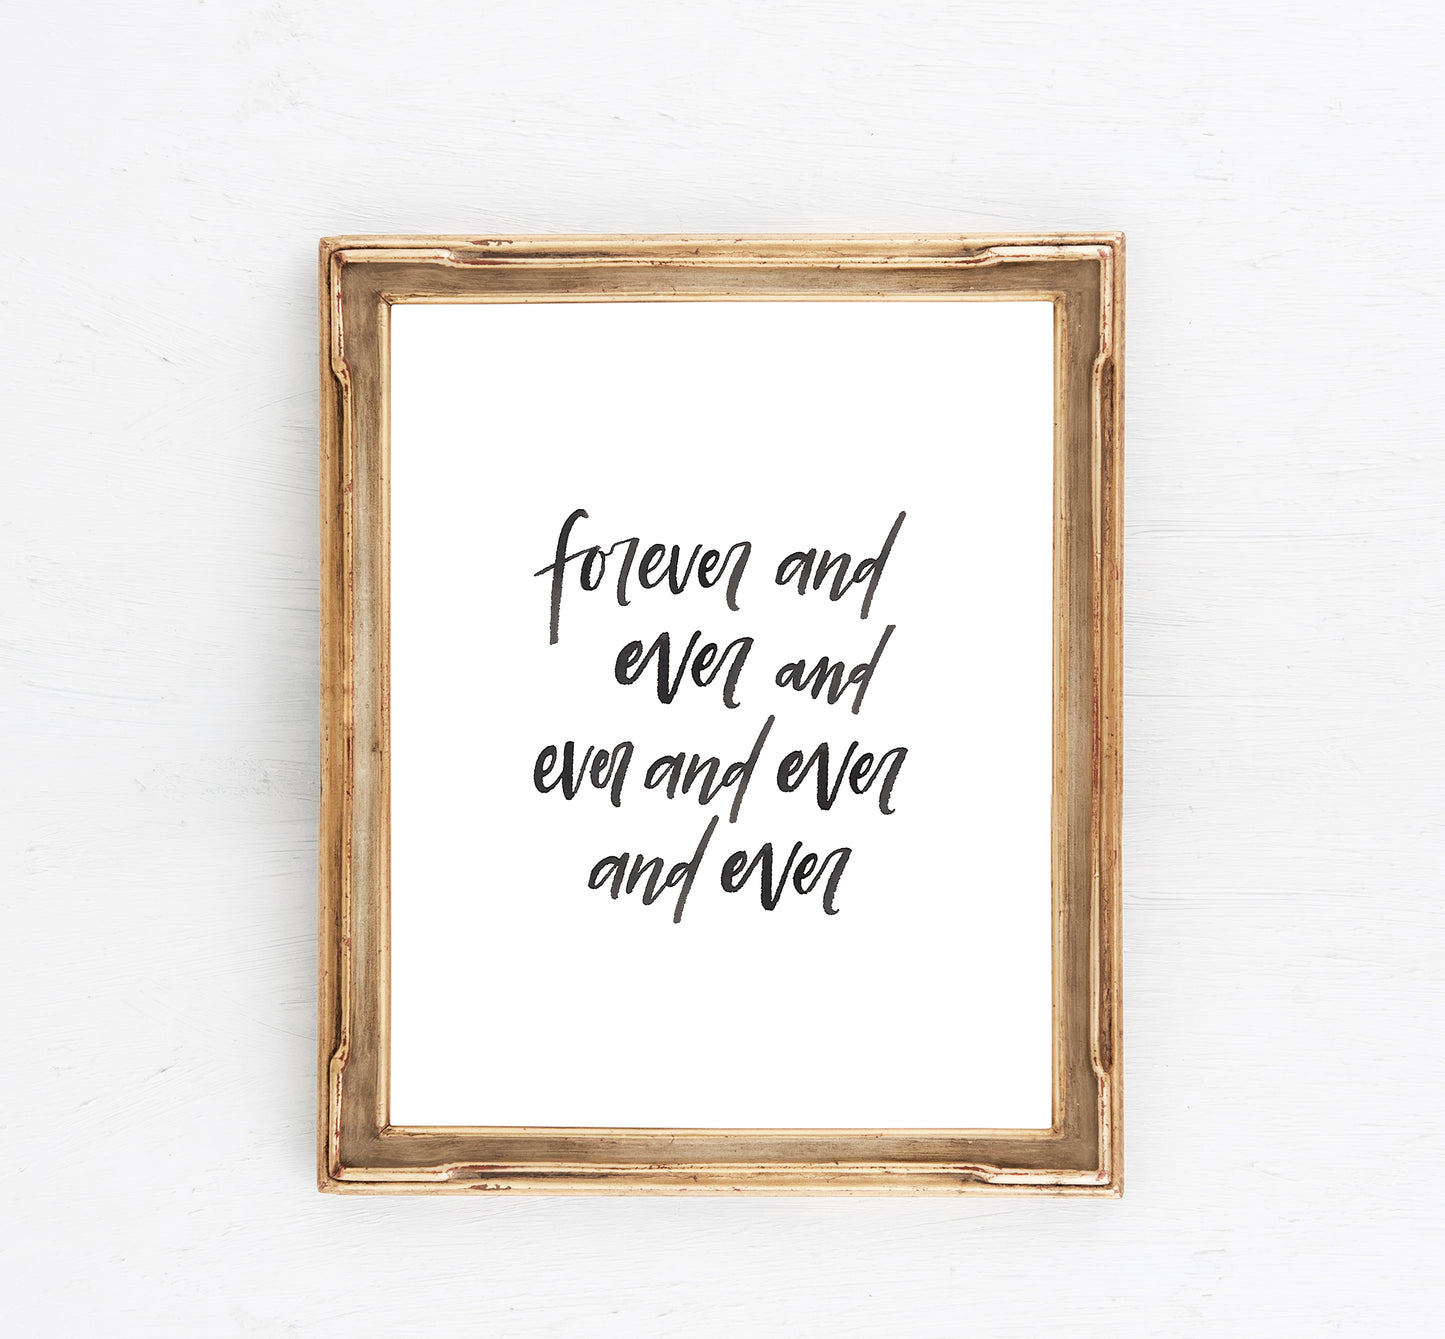 forever and
ever and
ever and ever
and ever